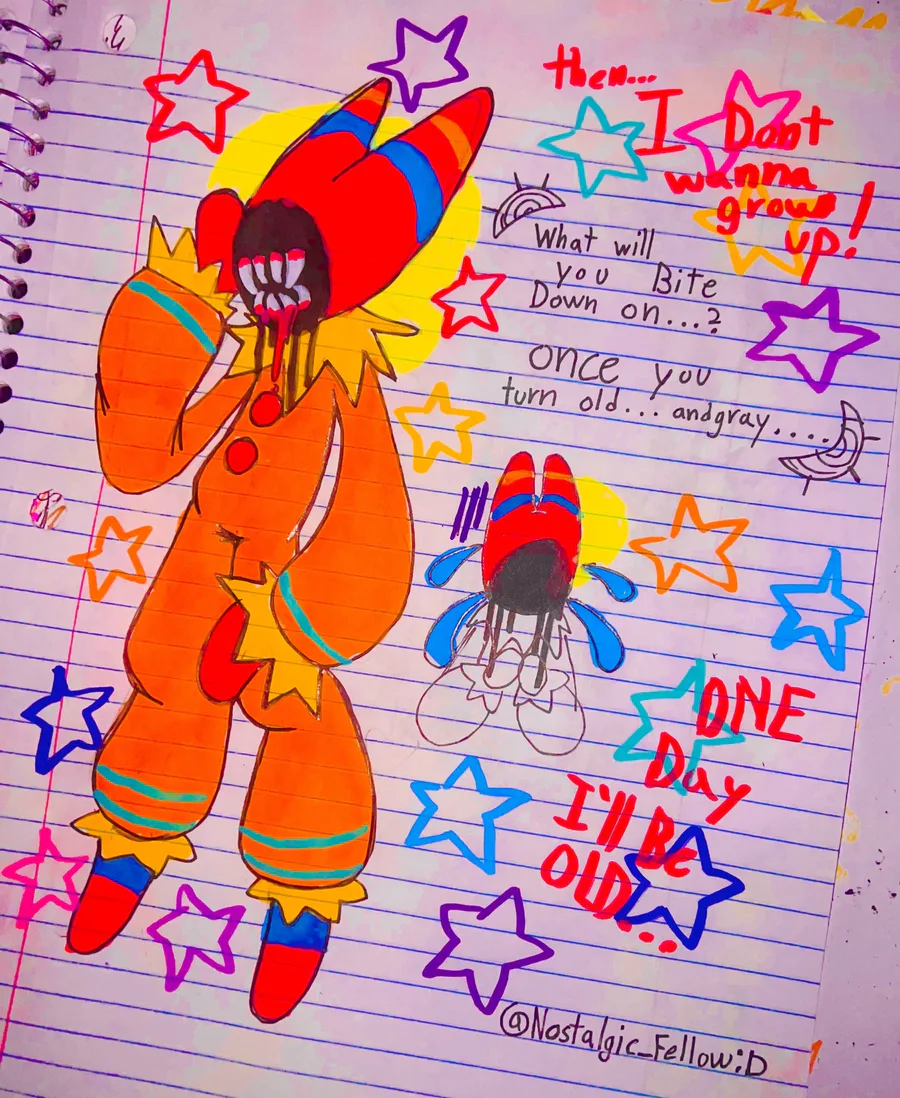 then...
I Dont
wanna
grow
up!
What will
you Bite
Down on...?
once you
turn old... andgray....
ONE
Day
I'll Be
OLD...
@Nostalgic_Fellow:D